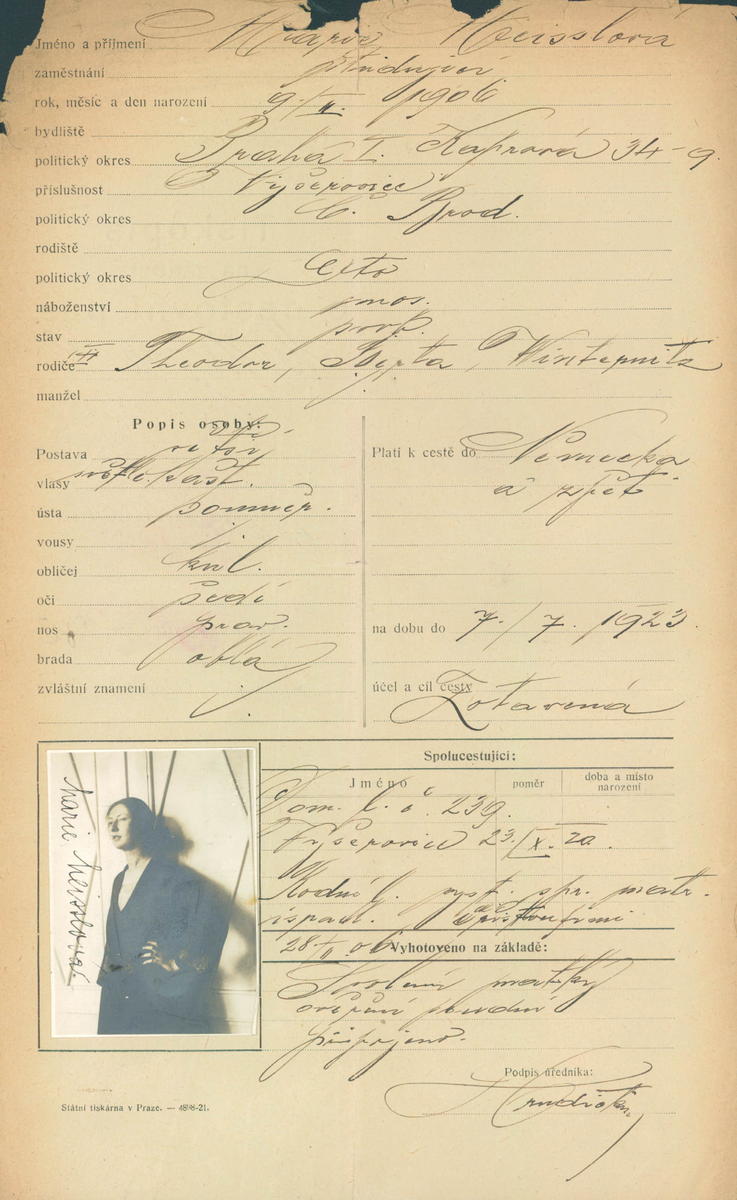 Jméno a příjmení Marie Meisslová
zaměstnání studující
rok, měsíc a den narození 9/II. 1906
bydliště
politický okres Praha I. Kaprová 34-9.
příslušnost Vyšerovice
politický okres Č. Brod.
rodiště
politický okres
náboženství mos.
stav
rodiče Theodor, Berta, Winternitz
manžel
Popis osoby:
Postava větší
vlasy světle kašt.
ústa
vousy
obličej kul.
oči šedé
nos prav.
brada oblá
zvláštní znamení
Platí k cestě do Německa
a zpět
na dobu do 7./7. 1923.
účel a cíl cesty Zotavená
Marie Meisslová
Spolucestující:
Jméno
poměr
doba a místo narození
Dom. l. č. 239.
Vyšerovice 23/X. 20.
Rodný l. vyst. spr. matr.
israel.
Vyhotoveno na základě:
Svolení matky
ověření
připojeno.
Podpis úředníka:
Státní tiskárna v Praze. — 4898-21.